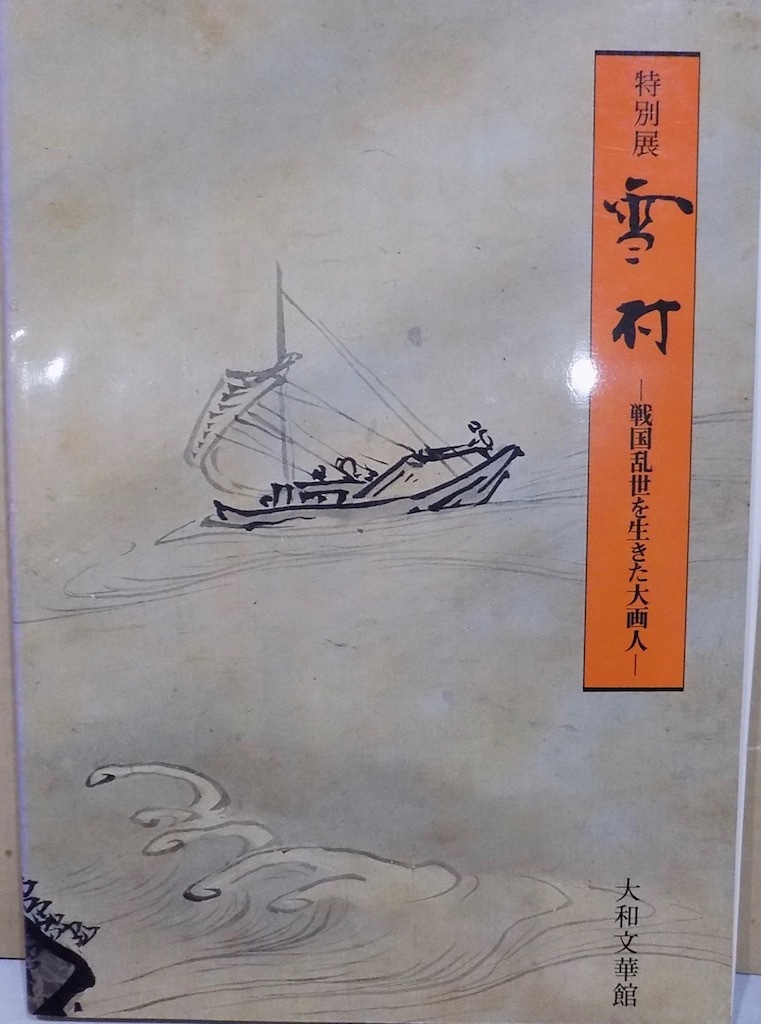 特別展
雪村
―戦国乱世を生きた大画人―
大和文華館